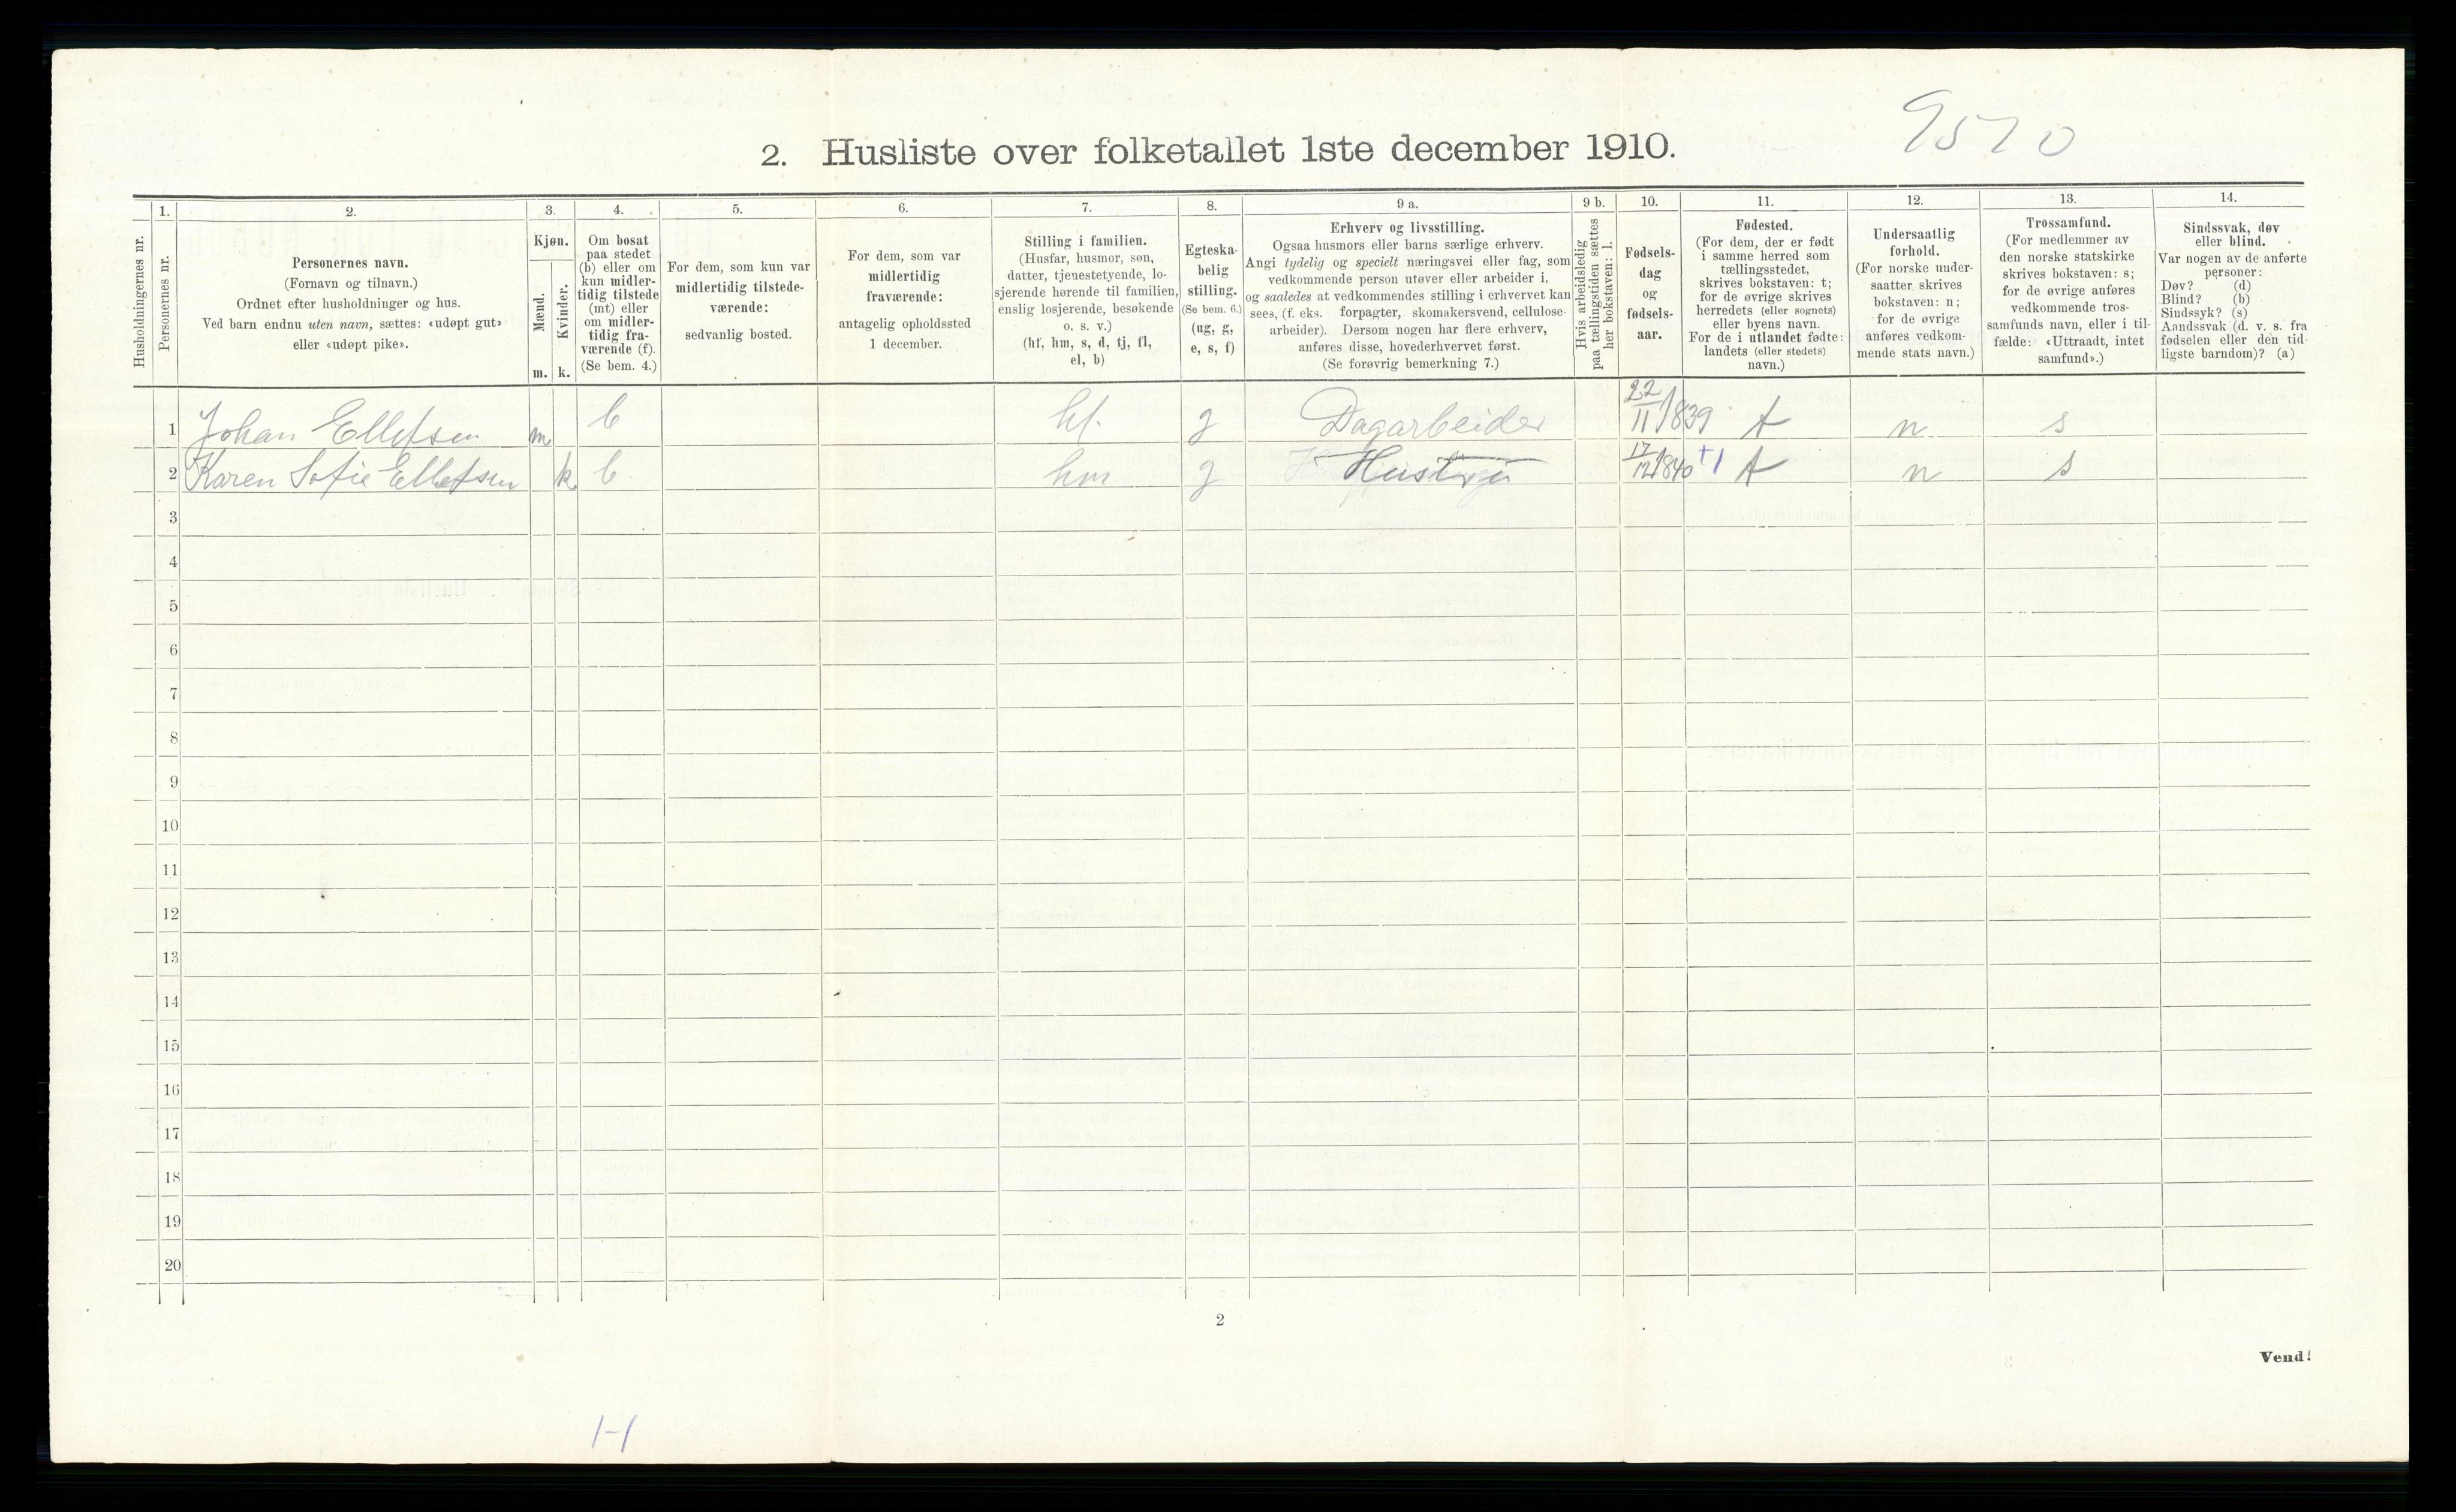 9570
2. Husliste over folketallet 1ste december 1910.
Husholdningernes nr.
1.
Personernes nr.
2.
Personernes navn.
(Fornavn og tilnavn.)
Ordnet efter husholdninger og hus.
Ved barn endnu uten navn, sættes: «udøpt gut»
eller «udøpt pike».
3.
Kjøn.
Mænd.
Kvinder.
m. k.
4.
Om bosat
paa stedet
(b) eller om
kun midler-
tidig tilstede
(mt) eller
om midler-
tidig fra-
værende (f).
(Se bem. 4.)
5.
For dem, som kun var
midlertidig tilstede-
værende:
sedvanlig bosted.
6.
For dem, som var
midlertidig
fraværende:
antagelig opholdssted
1 december.
7.
Stilling i familien.
(Husfar, husmor, søn,
datter, tjenestetyende, lo-
sjerende hørende til familien,
enslig losjerende, besøkende
o. s. v.)
(hf, hm, s, d, tj, fl,
el, b)
8.
Egteska-
belig
stilling.
(Se bem. 6.)
(ug, g,
e, s, f)
9 a.
Erhverv og livsstilling.
Ogsaa husmors eller barns særlige erhverv.
Angi tydelig og specielt næringsvei eller fag, som
vedkommende person utøver eller arbeider i,
og saaledes at vedkommendes stilling i erhvervet kan
sees, (f. eks. forpagter, skomakersvend, cellulose-
arbeider). Dersom nogen har flere erhverv,
anføres disse, hovederhvervet først.
(Se forøvrig bemerkning 7.)
9 b.
Hvis arbeidsledig
paa tællingstiden sættes
her bokstaven: l.
10.
Fødsels-
dag
og
fødsels-
aar.
11.
Fødested.
(For dem, der er født
i samme herred som
tællingsstedet,
skrives bokstaven: t;
for de øvrige skrives
herredets (eller sognets)
eller byens navn.
For de i utlandet fødte:
landets (eller stedets)
navn.)
12.
Undersaatlig
forhold.
(For norske under-
saatter skrives
bokstaven: n;
for de øvrige
anføres vedkom-
mende stats navn.)
13.
Trossamfund.
(For medlemmer av
den norske statskirke
skrives bokstaven: s;
for de øvrige anføres
vedkommende tros-
samfunds navn, eller i til-
fælde: «Uttraadt, intet
samfund».)
14.
Sindssvak, døv
eller blind.
Var nogen av de anførte
personer:
Døv? (d)
Blind? (b)
Sindssyk? (s)
Aandssvak (d. v. s. fra
fødselen eller den tid-
ligste barndom)? (a)
1 Johan Ellefsen m b hf. g Dagarbeider 22/11 1839 t n s
2 Karen Sofie Ellefsen k b hm g 17/12 1840 +1 t n s
3
4
5
6
7
8
9
10
11
12
13
14
15
16
17
18
19
20
2
Vend!
1-1